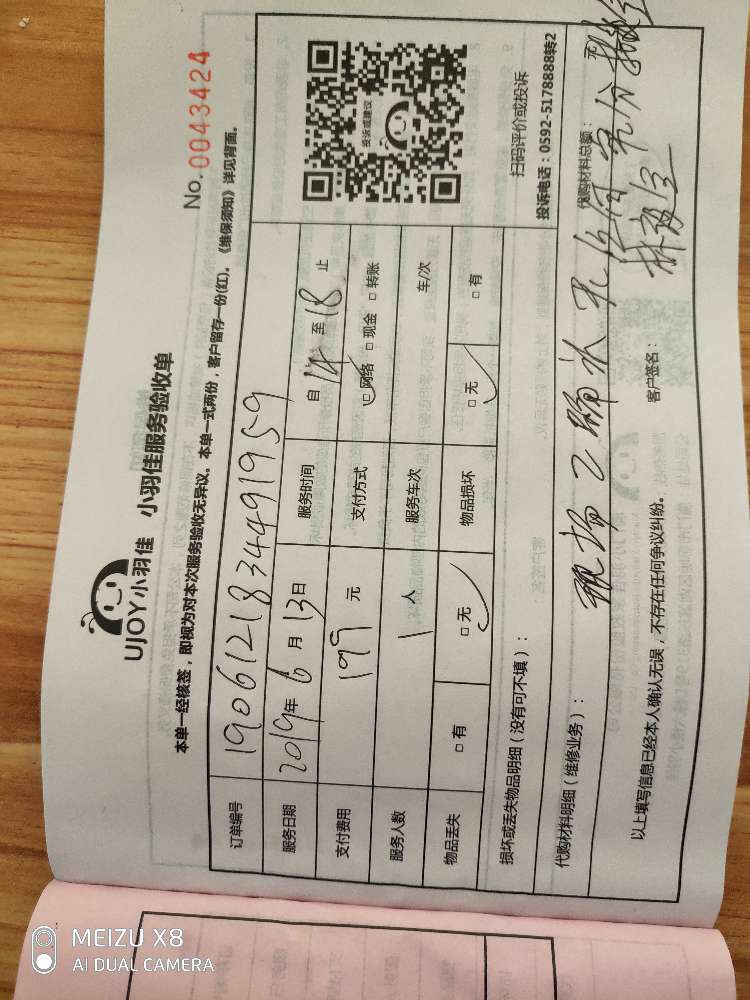 UJOY小羽佳 小羽佳服务验收单
No. 0043424
本单一经核签，即视为对本次服务验收无异议。本单一式两份，客户留存一份(红)。《维保须知》详见背面。
订单编号 1906121834491959
服务日期 2019年6月13日 服务时间 自14至18止
支付费用 199元 支付方式 网络 □现金 □转账
服务人数 1人 服务车次 车/次
物品丢失 □有 □无 物品损坏 □无 □有
投诉或建议
扫码评价或投诉
投诉电话：0592-5178888转2
损坏或丢失物品明细（没有可不填）：
代购材料明细（维修业务）： 代购材料总额： 元
以上填写信息已经本人确认无误，不存在任何争议纠纷。 客户签名：
MEIZU X8
AI DUAL CAMERA